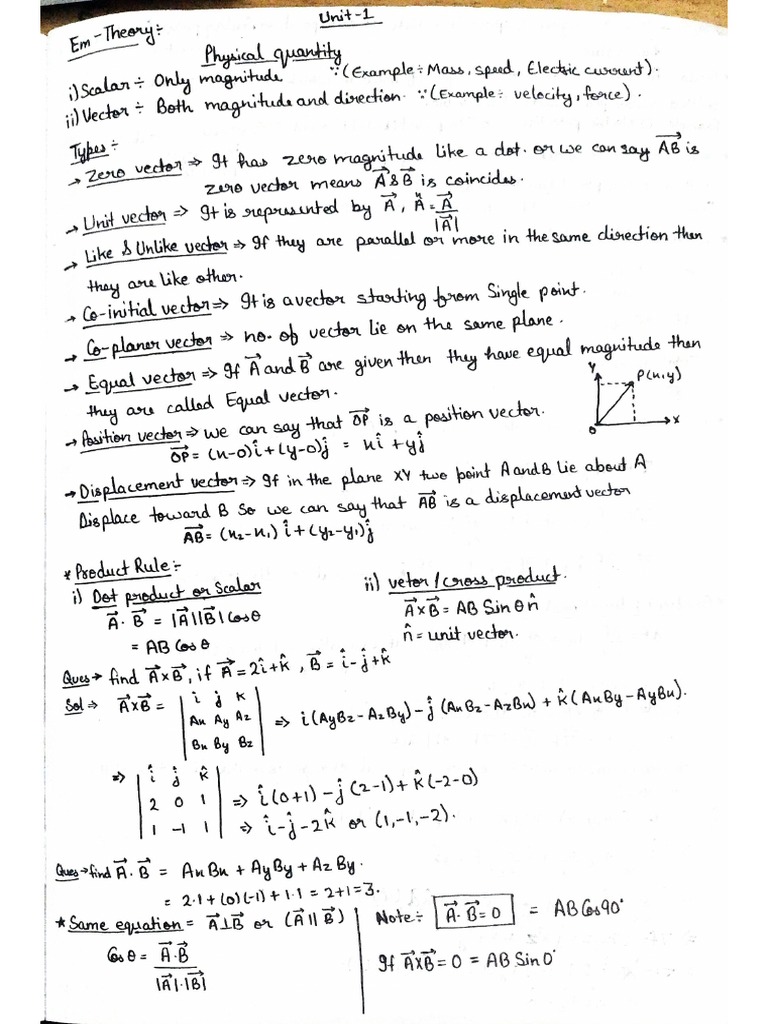 Unit-1
Em-Theory:-
Physical quantity
i) Scalar :- Only magnitude ∵ (Example :- Mass, speed, Electric current).
ii) Vector :- Both magnitude and direction. ∵ (Example :- velocity, force).
Types :-
→ Zero vector ⇒ It has zero magnitude like a dot. or we can say AB⃗ is
zero vector means A⃗ & B⃗ is coincides.
→ Unit vector ⇒ It is represented by A⃗, Â = A⃗/|A⃗|
→ Like & Unlike vector ⇒ If they are parallel or more in the same direction then
they are like other.
→ Co-initial vector ⇒ It is a vector starting from Single point.
→ Co-planer vector ⇒ no. of vector lie on the same plane.
→ Equal vector ⇒ If A⃗ and B⃗ are given then they have equal magnitude then
they are called Equal vector.
Y P(x,y)
O X
→ Position vector ⇒ we can say that OP⃗ is a position vector.
OP⃗ = (x-0)î + (y-0)ĵ = xî + yĵ
→ Displacement vector ⇒ If in the plane XY two point A and B lie about A
Displace toward B So we can say that AB⃗ is a displacement vector
AB⃗ = (x₂-x₁)î + (y₂-y₁)ĵ
* Product Rule :-
i) Dot product or Scalar
A⃗ . B⃗ = |A⃗||B⃗| Cos θ
= AB Cos θ
ii) vetor / cross product.
A⃗ x B⃗ = AB Sin θ n̂
n̂ = unit vector.
Ques → find A⃗xB⃗, if A⃗ = 2î + k̂, B⃗ = î - ĵ + k̂
Sol ⇒ A⃗xB⃗ = | i j k | ⇒ i(AyBz - AzBy) - ĵ(AxBz - AzBx) + k̂(AxBy - AyBx).
Ax Ay Az
Bx By Bz
⇒ | î ĵ k̂ |
2 0 1 ⇒ î(0+1) - ĵ(2-1) + k̂(-2-0)
1 -1 1 ⇒ î - ĵ - 2k̂ or (1,-1,-2).
Ques → find A⃗ . B⃗ = AxBx + AyBy + AzBy.
= 2·1 + (0)(-1) + 1·1 = 2+1 = 3.
* Same equation = A⃗⊥B⃗ or (A⃗ || B⃗)
Cos θ = A⃗.B⃗ / |A⃗|.|B⃗|
Note :- A⃗.B⃗ = 0 = AB Cos 90°
If A⃗xB⃗ = 0 = AB Sin 0°